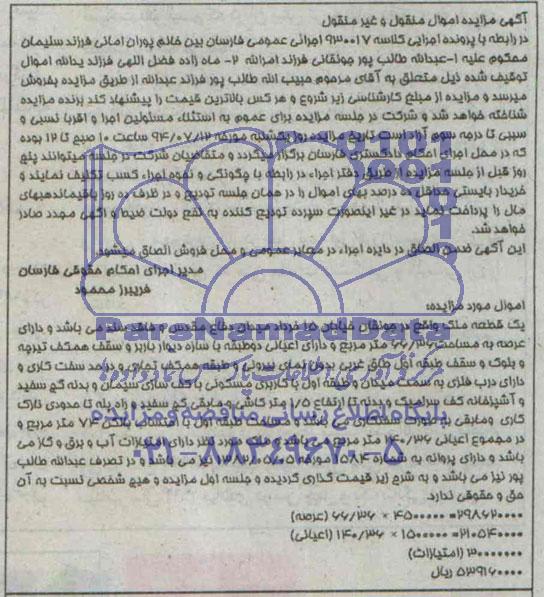 آگهی مزایده اموال منقول و غیر منقول
در رابطه با پرونده اجرایی کلاسه ۹۳۰۰۱۷ اجرائی عمومی فارسان بین خانم پوران امانی فرزند سلیمان
محکوم علیه ۱-عبدالله طالب پور جونقانی فرزند امرالله ۲- ماه زاده فضل اللهی فرزند یدالله اموال
توقیف شده ذیل متعلق به آقای مرحوم حبیب الله طالب پور فرزند عبدالله از طریق مزایده بفروش
میرسد و مزایده از مبلغ کارشناسی زیر شروع و هر کس بالاترین قیمت را پیشنهاد کند برنده مزایده
شناخته خواهد شد و شرکت در جلسه مزایده برای عموم به استثناء مسئولین اجرا و اقربا نسبی و
سببی تا درجه سوم آزاد است تاریخ مزایده روز یکشنبه مورخه ۹۴/۰۷/۱۲ ساعت ۱۰ صبح تا ۱۲ بوده
که در محل اجرای احکام دادگستری فارسان برگزار میگردد و متقاضیان شرکت در جلسه میتوانند پنج
روز قبل از جلسه مزایده از طریق دفتر اجراء در رابطه با چگونگی و نحوه اجراء کسب تکلیف نمایند و
خریدار بایستی حداقل ده درصد بهای اموال را در همان جلسه تودیع و در ظرف ده روز باقیماندهبهای
مال را پرداخت نماید در غیر اینصورت سپرده تودیع کننده به نفع دولت ضبط و آگهی مجدد صادر
خواهد شد.
این آگهی ضمن الصاق در دایره اجراء در معابر عمومی و محل فروش الصاق میشود.
مدیر اجرای احکام حقوقی فارسان
فریبرز محمود
اموال مورد مزایده:
یک قطعه ملک واقع در جونقان خیابان ۱۵ خرداد میدان دفاع مقدس و فاقد سند می باشد و دارای
عرصه به مساحت ۶۶/۳۶ متر مربع و دارای اعیانی دوطبقه با سازه دیوار باربر و سقف همکف تیرچه
و بلوک و سقف طبقه اول طاق غربی بدون نمای بیرونی و طبقه همکف تجاری و درجه سفت کاری و
دارای درب فلزی به سمت میدان و طبقه اول با کاربری مسکونی با کف سازی سیمان و بدنه گچ سفید
و آشپزخانه کف سرامیک و بدنه تا ارتفاع ۱/۵ متر کاشی و مابقی گچ سفید و راه پله تا حدودی نازک
کاری ومابقی به صورت سفتکاری می باشد و مساحت طبقه اول با احتساب بالکن ۷۴ متر مربع و
در مجموع اعیانی ۱۴۰/۳۶ متر مربع می باشد و ملک مورد نظر دارای امتیازات آب و برق و گاز می
باشد و دارای پروانه به شماره ۱۵۸۴ مورخه نیز می باشد و در تصرف عبدالله طالب
پور نیز می باشد و به شرح زیر قیمت گذاری گردیده و جلسه اول مزایده و هیچ شخصی نسبت به آن
حق و حقوقی ندارد.
۲۹۸۶۲۰۰۰۰= ۴۵۰۰۰۰۰ × ۶۶/۳۶ (عرصه)
۲۱۰۵۴۰۰۰۰= ۱۵۰۰۰۰۰ × ۱۴۰/۳۶ (اعیانی)
۳۰۰۰۰۰۰۰ (امتیازات)
۵۳۹۱۶۰۰۰۰ ریال
ParsNamadData
پایگاه اطلاع رسانی مناقصه و مزایده
۰۲۱-۸۸۳۴۹۶۷۰-۵